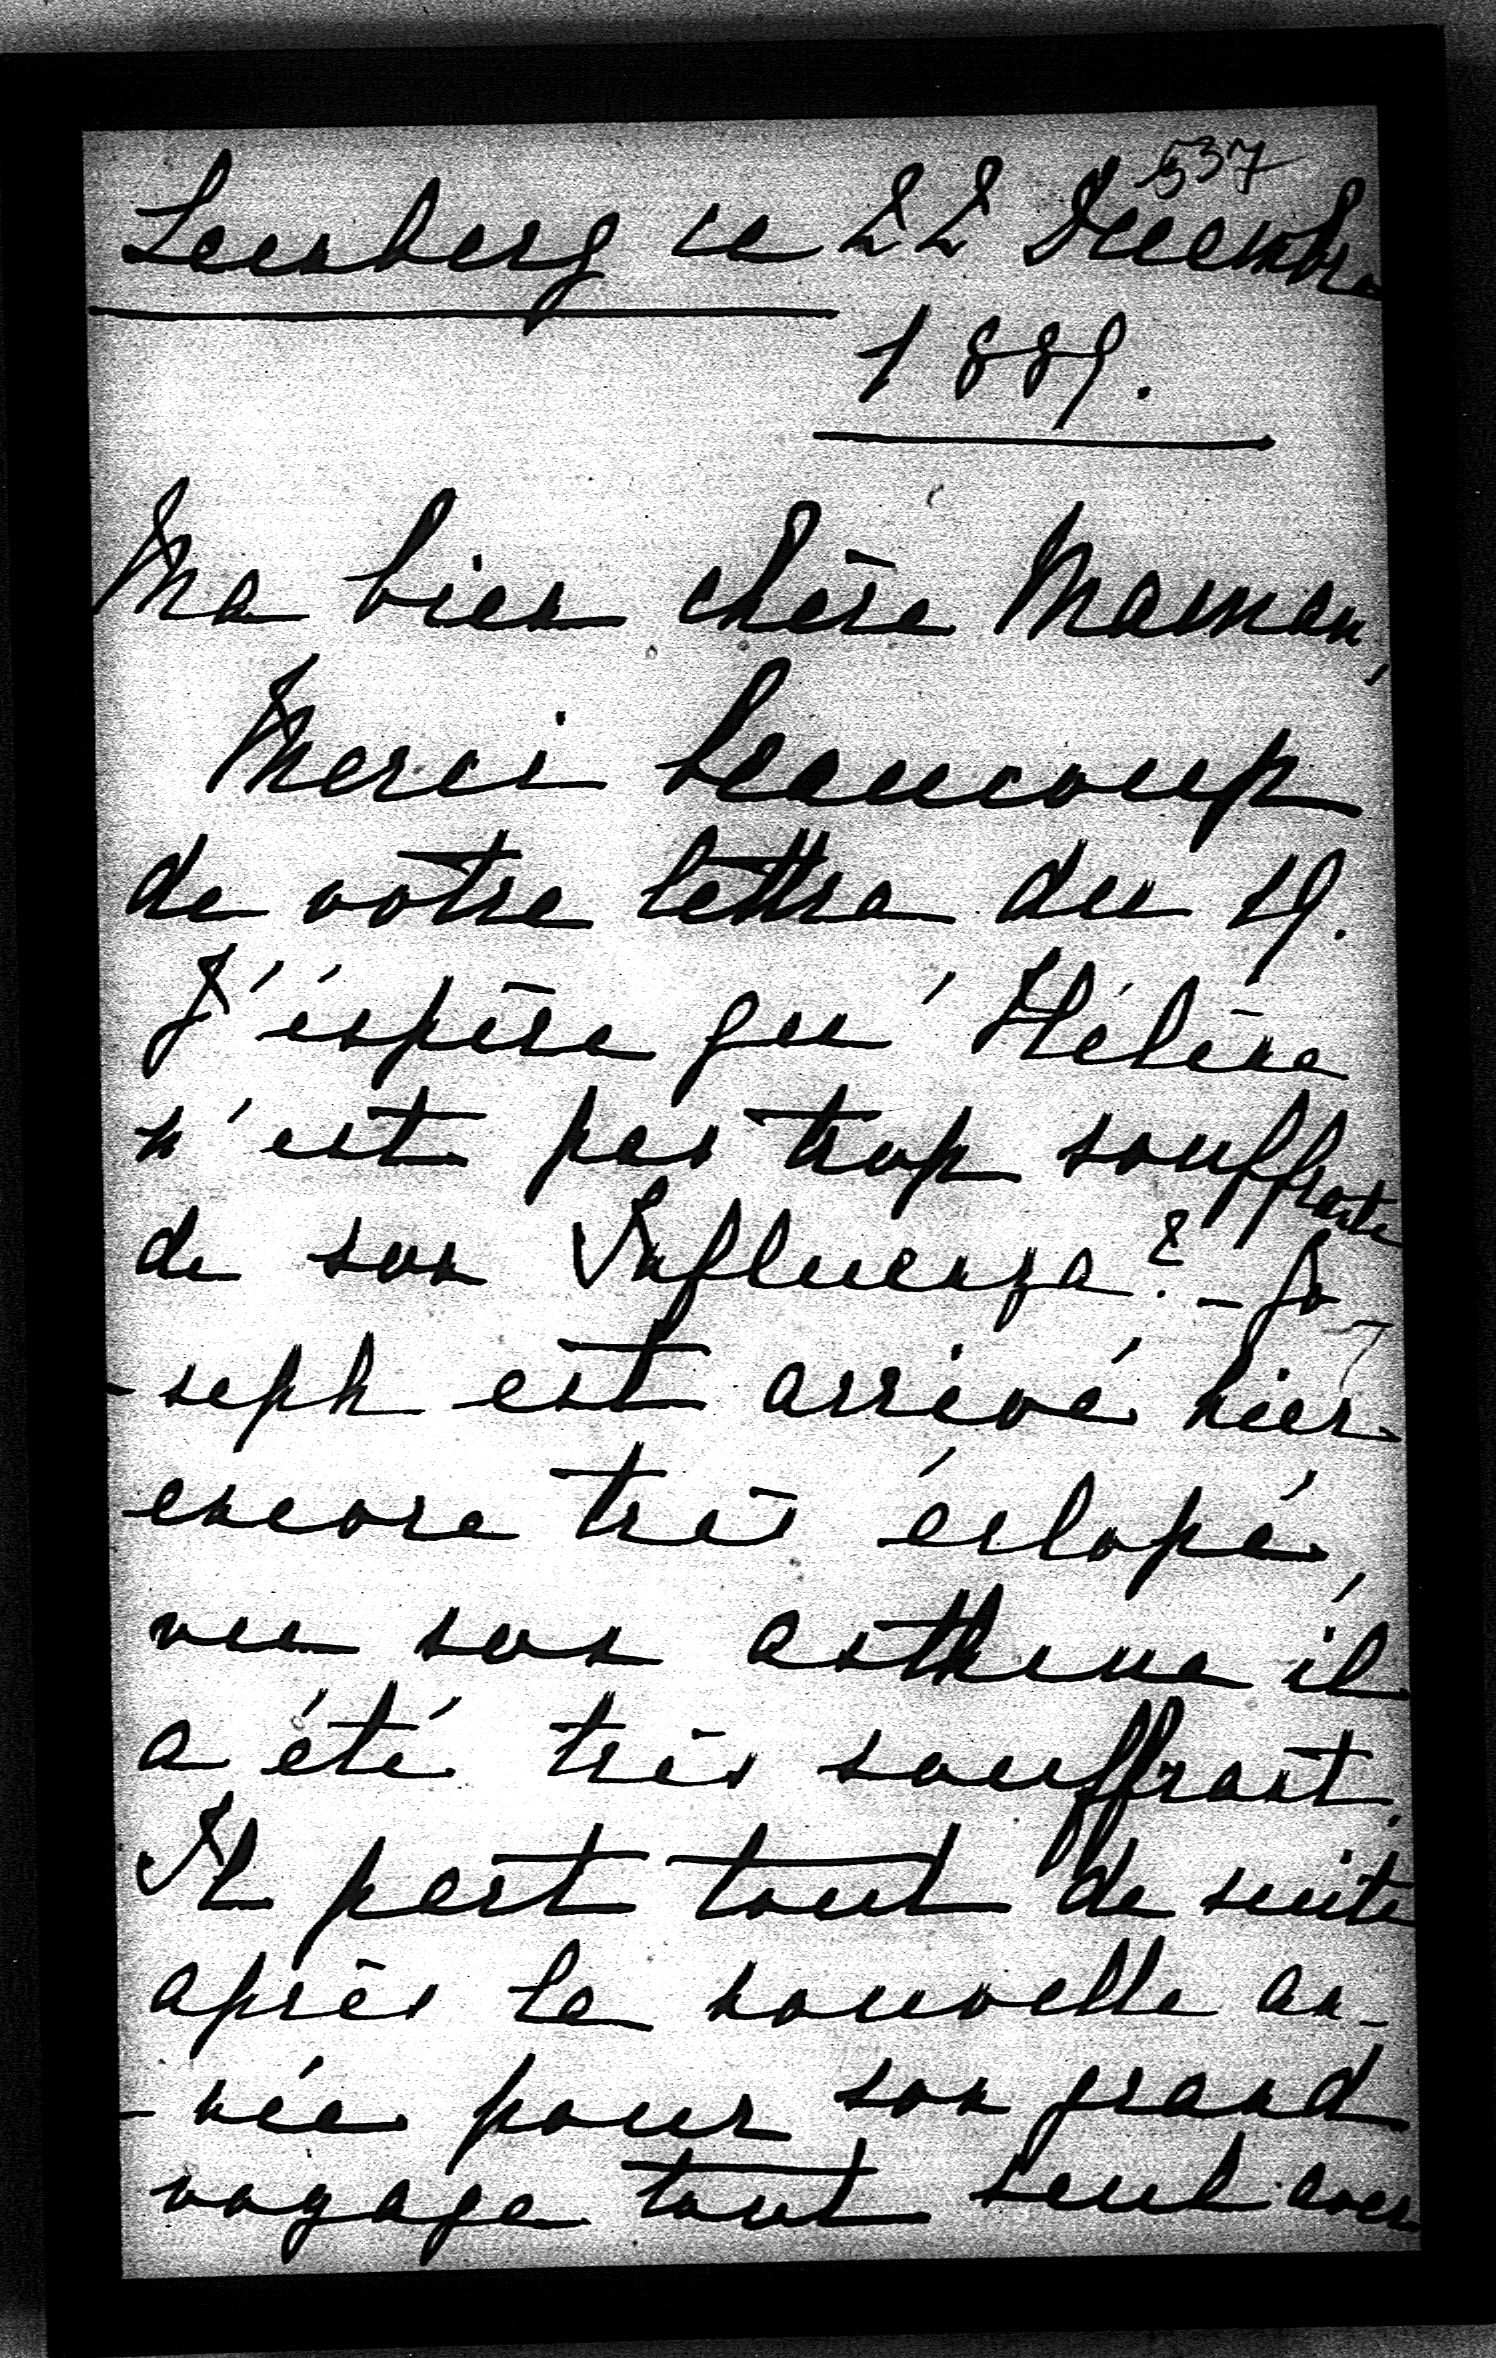 537
Seusberg ce 22 Décembre
1889.
Ma bien chère Maman,
Merci beaucoup
de votre lettre du 19.
J'éspère qu'Hélène
n'est pas trop souffrante
de son Influenza? – Jo
-seph est arrivé hier
encore très éclopé
vu son asthme il
a été très souffrant.
Il part tout de suite
après la nouvelle an-
-née pour son grand
voyage tout seul avec